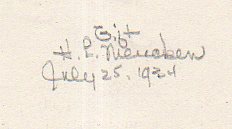 Gift
H. L. Mencken
July 25, 1924